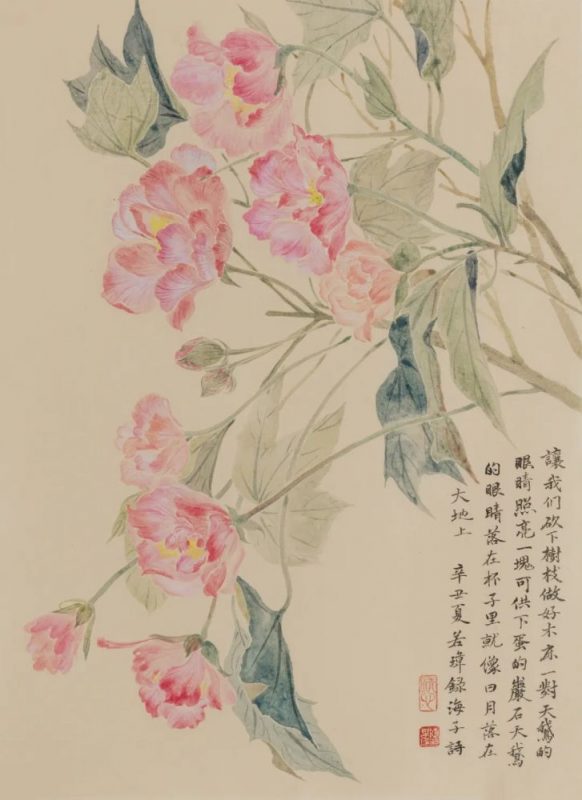 讓我们砍下樹枝做好木床一對天鵝的
眼睛照亮一塊可供下蛋的巖石天鵝
的眼睛落在杯子里就像日月落在
大地上 辛丑夏若瑋錄海子詩